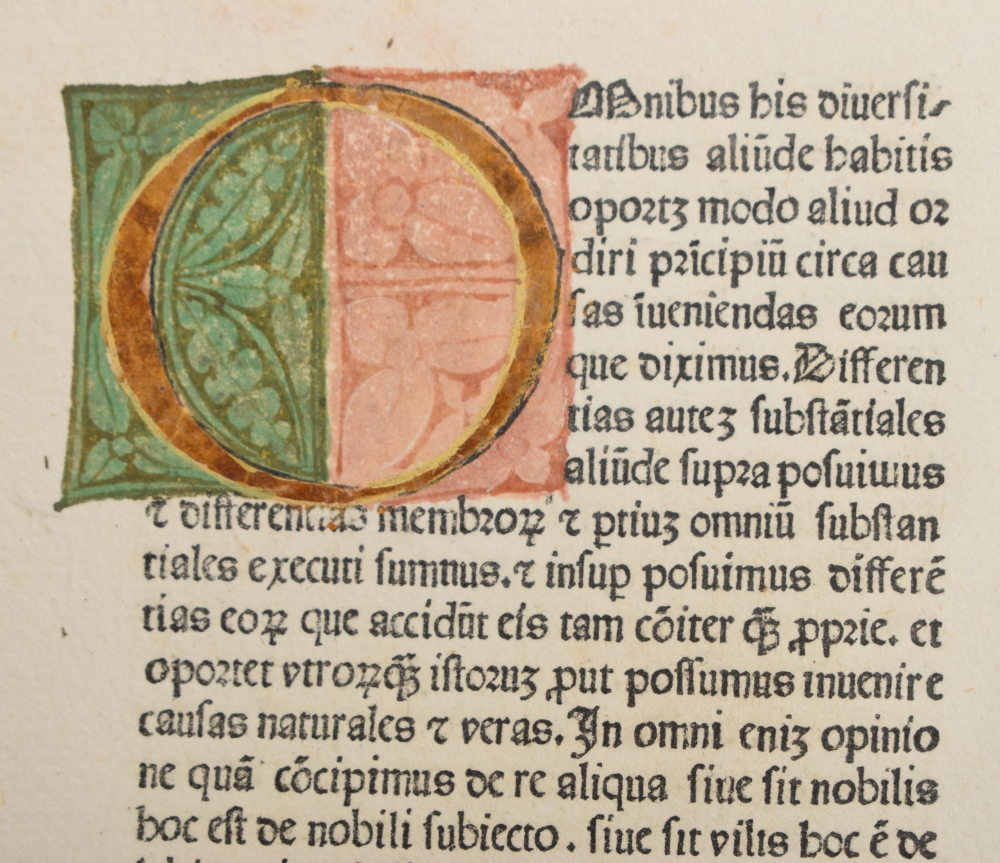 OMnibus his diuersi-
tatibus aliūde habitis
oportꝫ modo aliud or
diri prīcipiū circa cau
sas īueniendas eorum
que diximus. Differen
tias auteꝫ substātiales
aliūde supra posuimus
⁊ differentias membroꝝ ⁊ ꝑtiuꝫ omniū substan
tiales executi sumus. ⁊ insuꝑ posuimus differē
tias eoꝝ que accidūt eis tam cōiter qꝫ̄ ꝓprie. et
oportet vtroꝝqꝫ̄ istoruꝫ ꝓut possumus inuenire
causas naturales ⁊ veras. In omni eniꝫ opinio
ne quā cōcipimus de re aliqua siue sit nobilis
hoc est de nobili subiecto. siue sit vilis hoc ē de